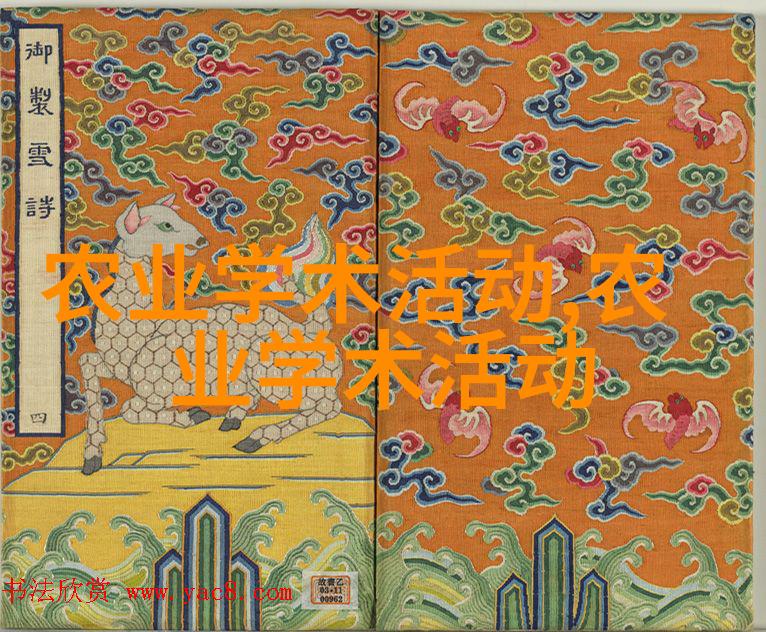 御製雪詩
四
农业学术活动,农
业学术活动
故書乙
03•11
00962
书法欣赏 www.yac8.com